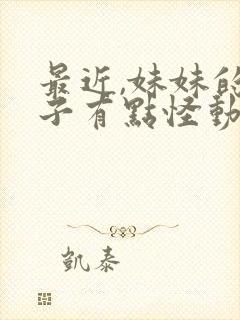 最近,妹妹的
子有點怪動
凱泰